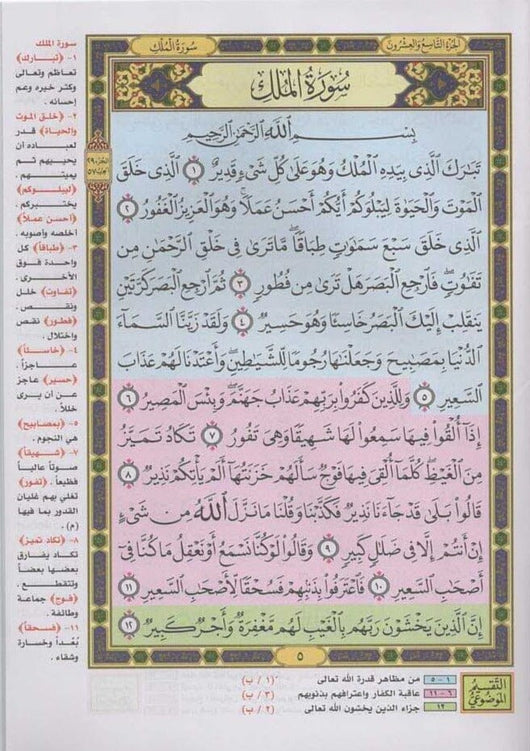 الجزء التاسع والعشرون
سورة الملك
سُورَةُ المُلْكِ
بِسْمِ اللَّهِ الرَّحْمَٰنِ الرَّحِيمِ
تَبَارَكَ الَّذِي بِيَدِهِ الْمُلْكُ وَهُوَ عَلَىٰ كُلِّ شَيْءٍ قَدِيرٌ ١ الَّذِي خَلَقَ
الْمَوْتَ وَالْحَيَوٰةَ لِيَبْلُوَكُمْ أَيُّكُمْ أَحْسَنُ عَمَلًا وَهُوَ الْعَزِيزُ الْغَفُورُ ٢
الَّذِي خَلَقَ سَبْعَ سَمَٰوَٰتٍ طِبَاقًا مَّا تَرَىٰ فِي خَلْقِ الرَّحْمَٰنِ مِن
تَفَٰوُتٍ فَارْجِعِ الْبَصَرَ هَلْ تَرَىٰ مِن فُطُورٍ ٣ ثُمَّ ارْجِعِ الْبَصَرَ كَرَّتَيْنِ
يَنقَلِبْ إِلَيْكَ الْبَصَرُ خَاسِئًا وَهُوَ حَسِيرٌ ٤ وَلَقَدْ زَيَّنَّا السَّمَاءَ
الدُّنْيَا بِمَصَٰبِيحَ وَجَعَلْنَٰهَا رُجُومًا لِّلشَّيَٰطِينِ وَأَعْتَدْنَا لَهُمْ عَذَابَ
السَّعِيرِ ٥ وَلِلَّذِينَ كَفَرُوا بِرَبِّهِمْ عَذَابُ جَهَنَّمَ وَبِئْسَ الْمَصِيرُ ٦
إِذَا أُلْقُوا فِيهَا سَمِعُوا لَهَا شَهِيقًا وَهِيَ تَفُورُ ٧ تَكَادُ تَمَيَّزُ
مِنَ الْغَيْظِ كُلَّمَا أُلْقِيَ فِيهَا فَوْجٌ سَأَلَهُمْ خَزَنَتُهَا أَلَمْ يَأْتِكُمْ نَذِيرٌ ٨
قَالُوا بَلَىٰ قَدْ جَاءَنَا نَذِيرٌ فَكَذَّبْنَا وَقُلْنَا مَا نَزَّلَ اللَّهُ مِن شَيْءٍ
إِنْ أَنتُمْ إِلَّا فِي ضَلَٰلٍ كَبِيرٍ ٩ وَقَالُوا لَوْ كُنَّا نَسْمَعُ أَوْ نَعْقِلُ مَا كُنَّا فِي
أَصْحَٰبِ السَّعِيرِ ١٠ فَاعْتَرَفُوا بِذَنبِهِمْ فَسُحْقًا لِّأَصْحَٰبِ السَّعِيرِ ١١
إِنَّ الَّذِينَ يَخْشَوْنَ رَبَّهُم بِالْغَيْبِ لَهُم مَّغْفِرَةٌ وَأَجْرٌ كَبِيرٌ ١٢
٥
سورة الملك
١- ﴿تبارك﴾
تعاظم وتعالى
وكثر خيره وعم
إحسانه.
٢- ﴿خلق الموت
والحياة﴾ قدر
لعباده أن
يحييهم ثم
يميتهم.
﴿ليبلوكم﴾
يختبركم.
﴿أحسن عملاً﴾
أخلصه وأصوبه.
٣- ﴿طباقاً﴾ كل
واحدة فوق
الأخرى.
﴿تفاوت﴾ خلل
ونقص.
﴿فطور﴾ نقص
واختلال.
٤- ﴿خاسئاً﴾
عاجزاً.
﴿حسير﴾ عاجز
عن أن يرى
خللاً.
٥- ﴿بمصابيح﴾
هي النجوم.
٧- ﴿شهيقاً﴾
صوتاً عالياً
فظيعاً. ﴿تفور﴾
تغلي بهم غليان
القدور بما فيها
(م).
٨- ﴿تكاد تميز﴾
تكاد يفارق
بعضها بعضاً
وتتقطع.
﴿فوج﴾ جماعة
وطائفة.
١١- ﴿فسحقاً﴾
بُعْداً وخسارة
وشقاء.
التقسيم
الموضوعي
١ - ٥ من مظاهر قدرة الله تعالى (١ / ب)
٦ - ١١ عاقبة الكفار واعترافهم بذنوبهم (٣ / ب)
١٢ جزاء الذين يخشون الله تعالى (٢ / ب)